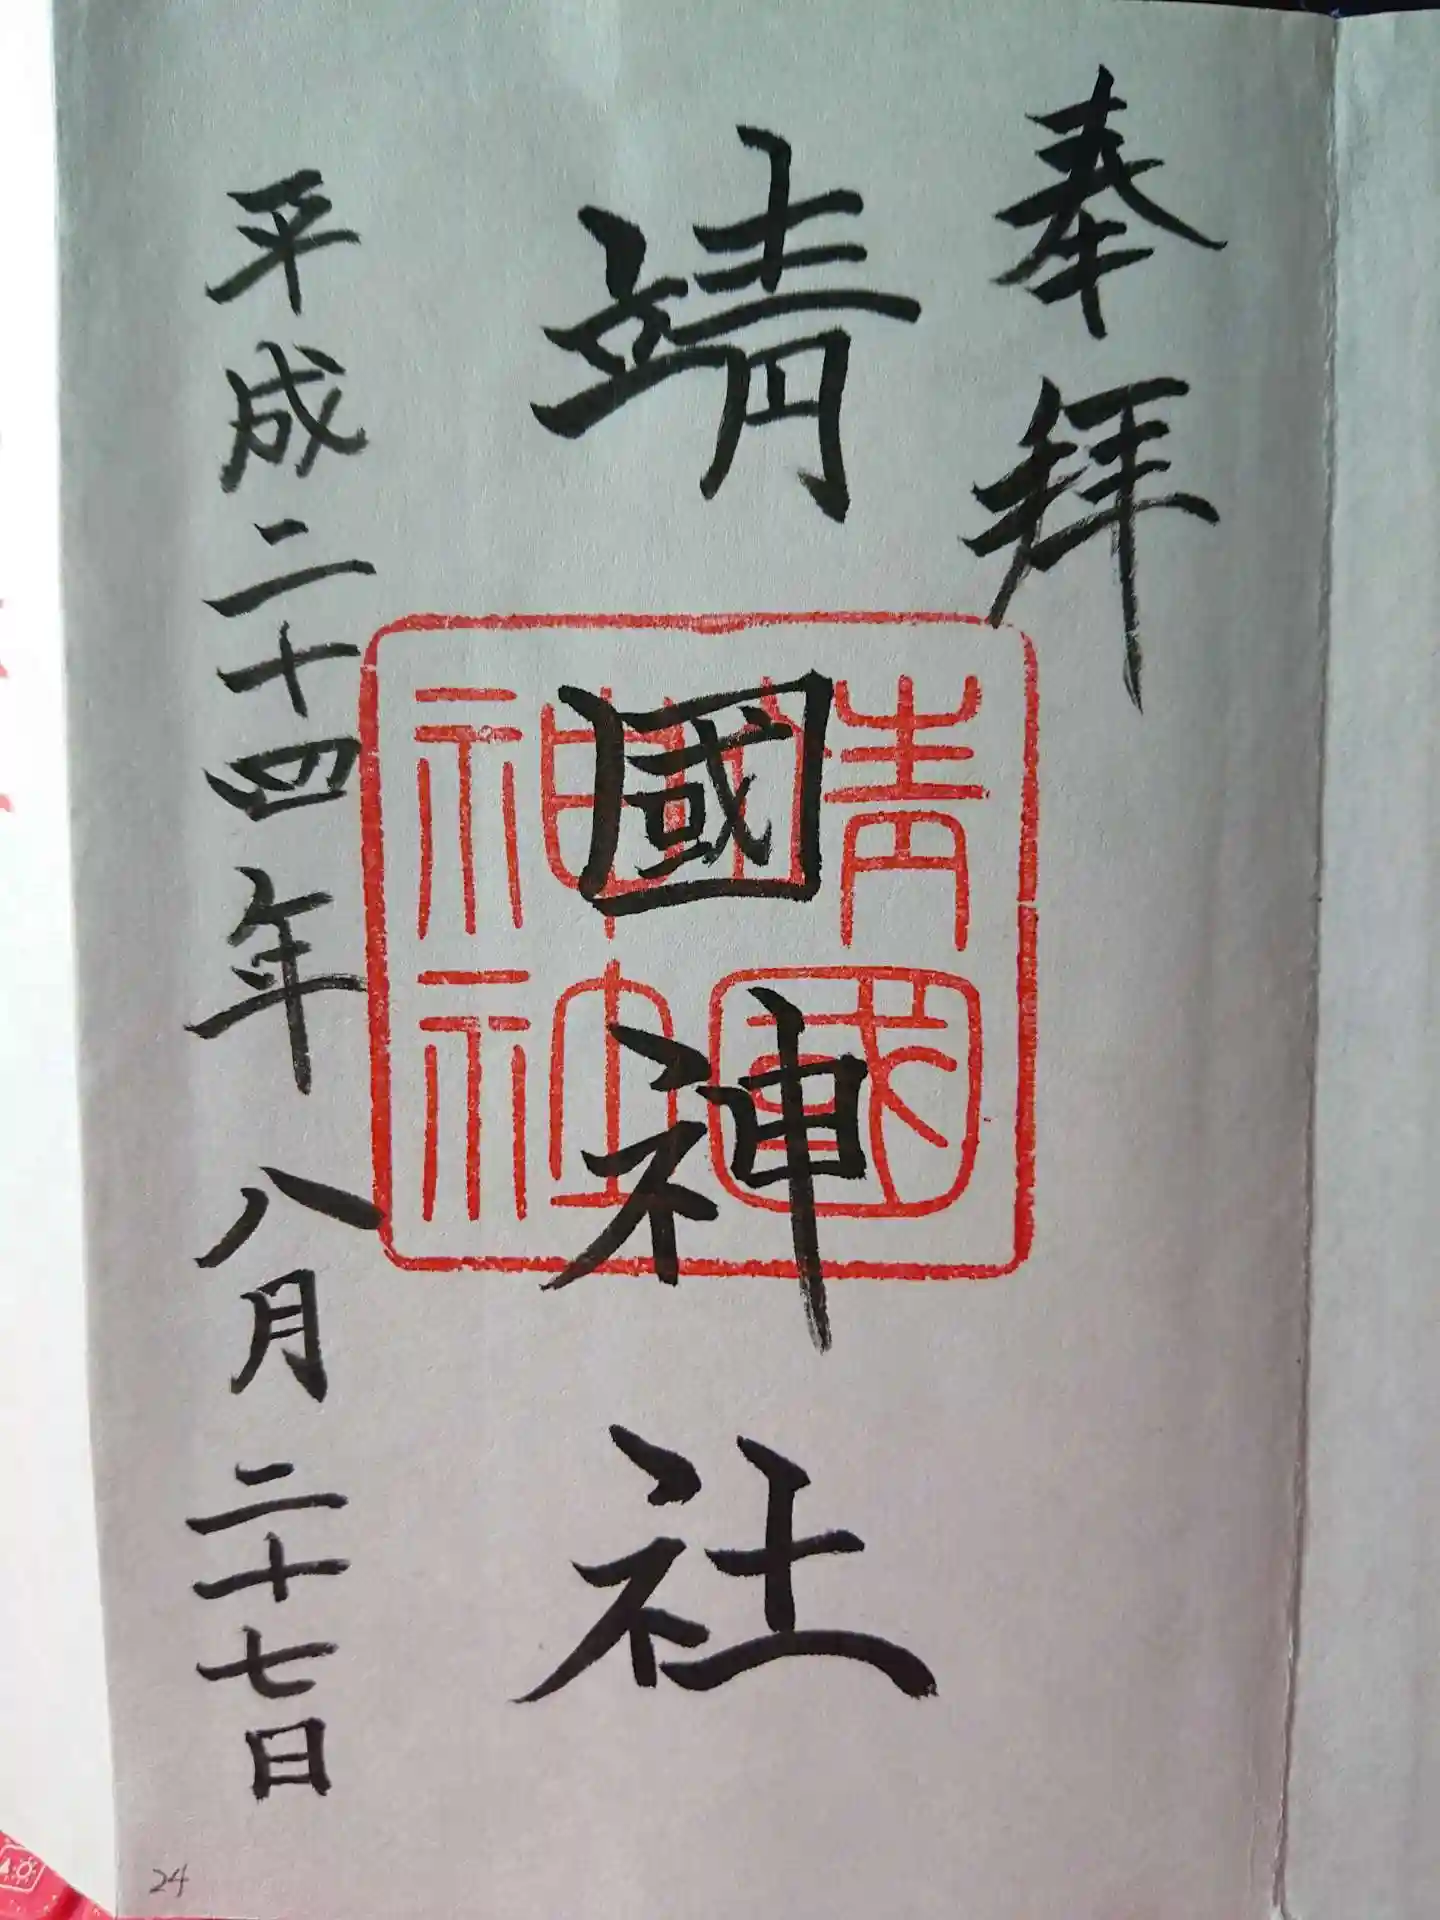 奉拝
靖國神社
靖國神社
平成二十四年八月二十七日
24